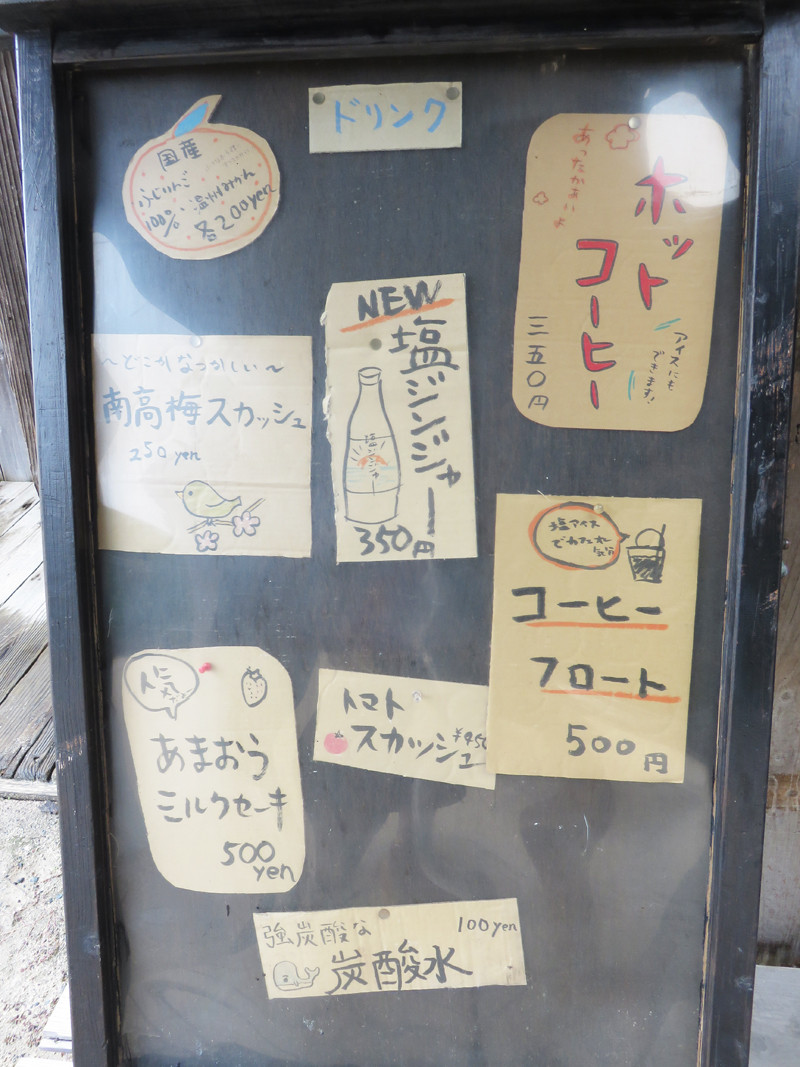 ドリンク
国産
ふじりんご
100%
温州みかん
各200yen
あったかぁいよ
ホット
コーヒー
三五〇円
アイスにも
できます!
NEW
塩ジンジャー
塩ジンジャー
350円
〜どこかなつかしい〜
南高梅スカッシュ
250yen
塩アイス
コーヒー
フロート
500円
人気
あまおう
ミルクセーキ
500
yen
トマト
スカッシュ
¥450
強炭酸な
100yen
炭酸水